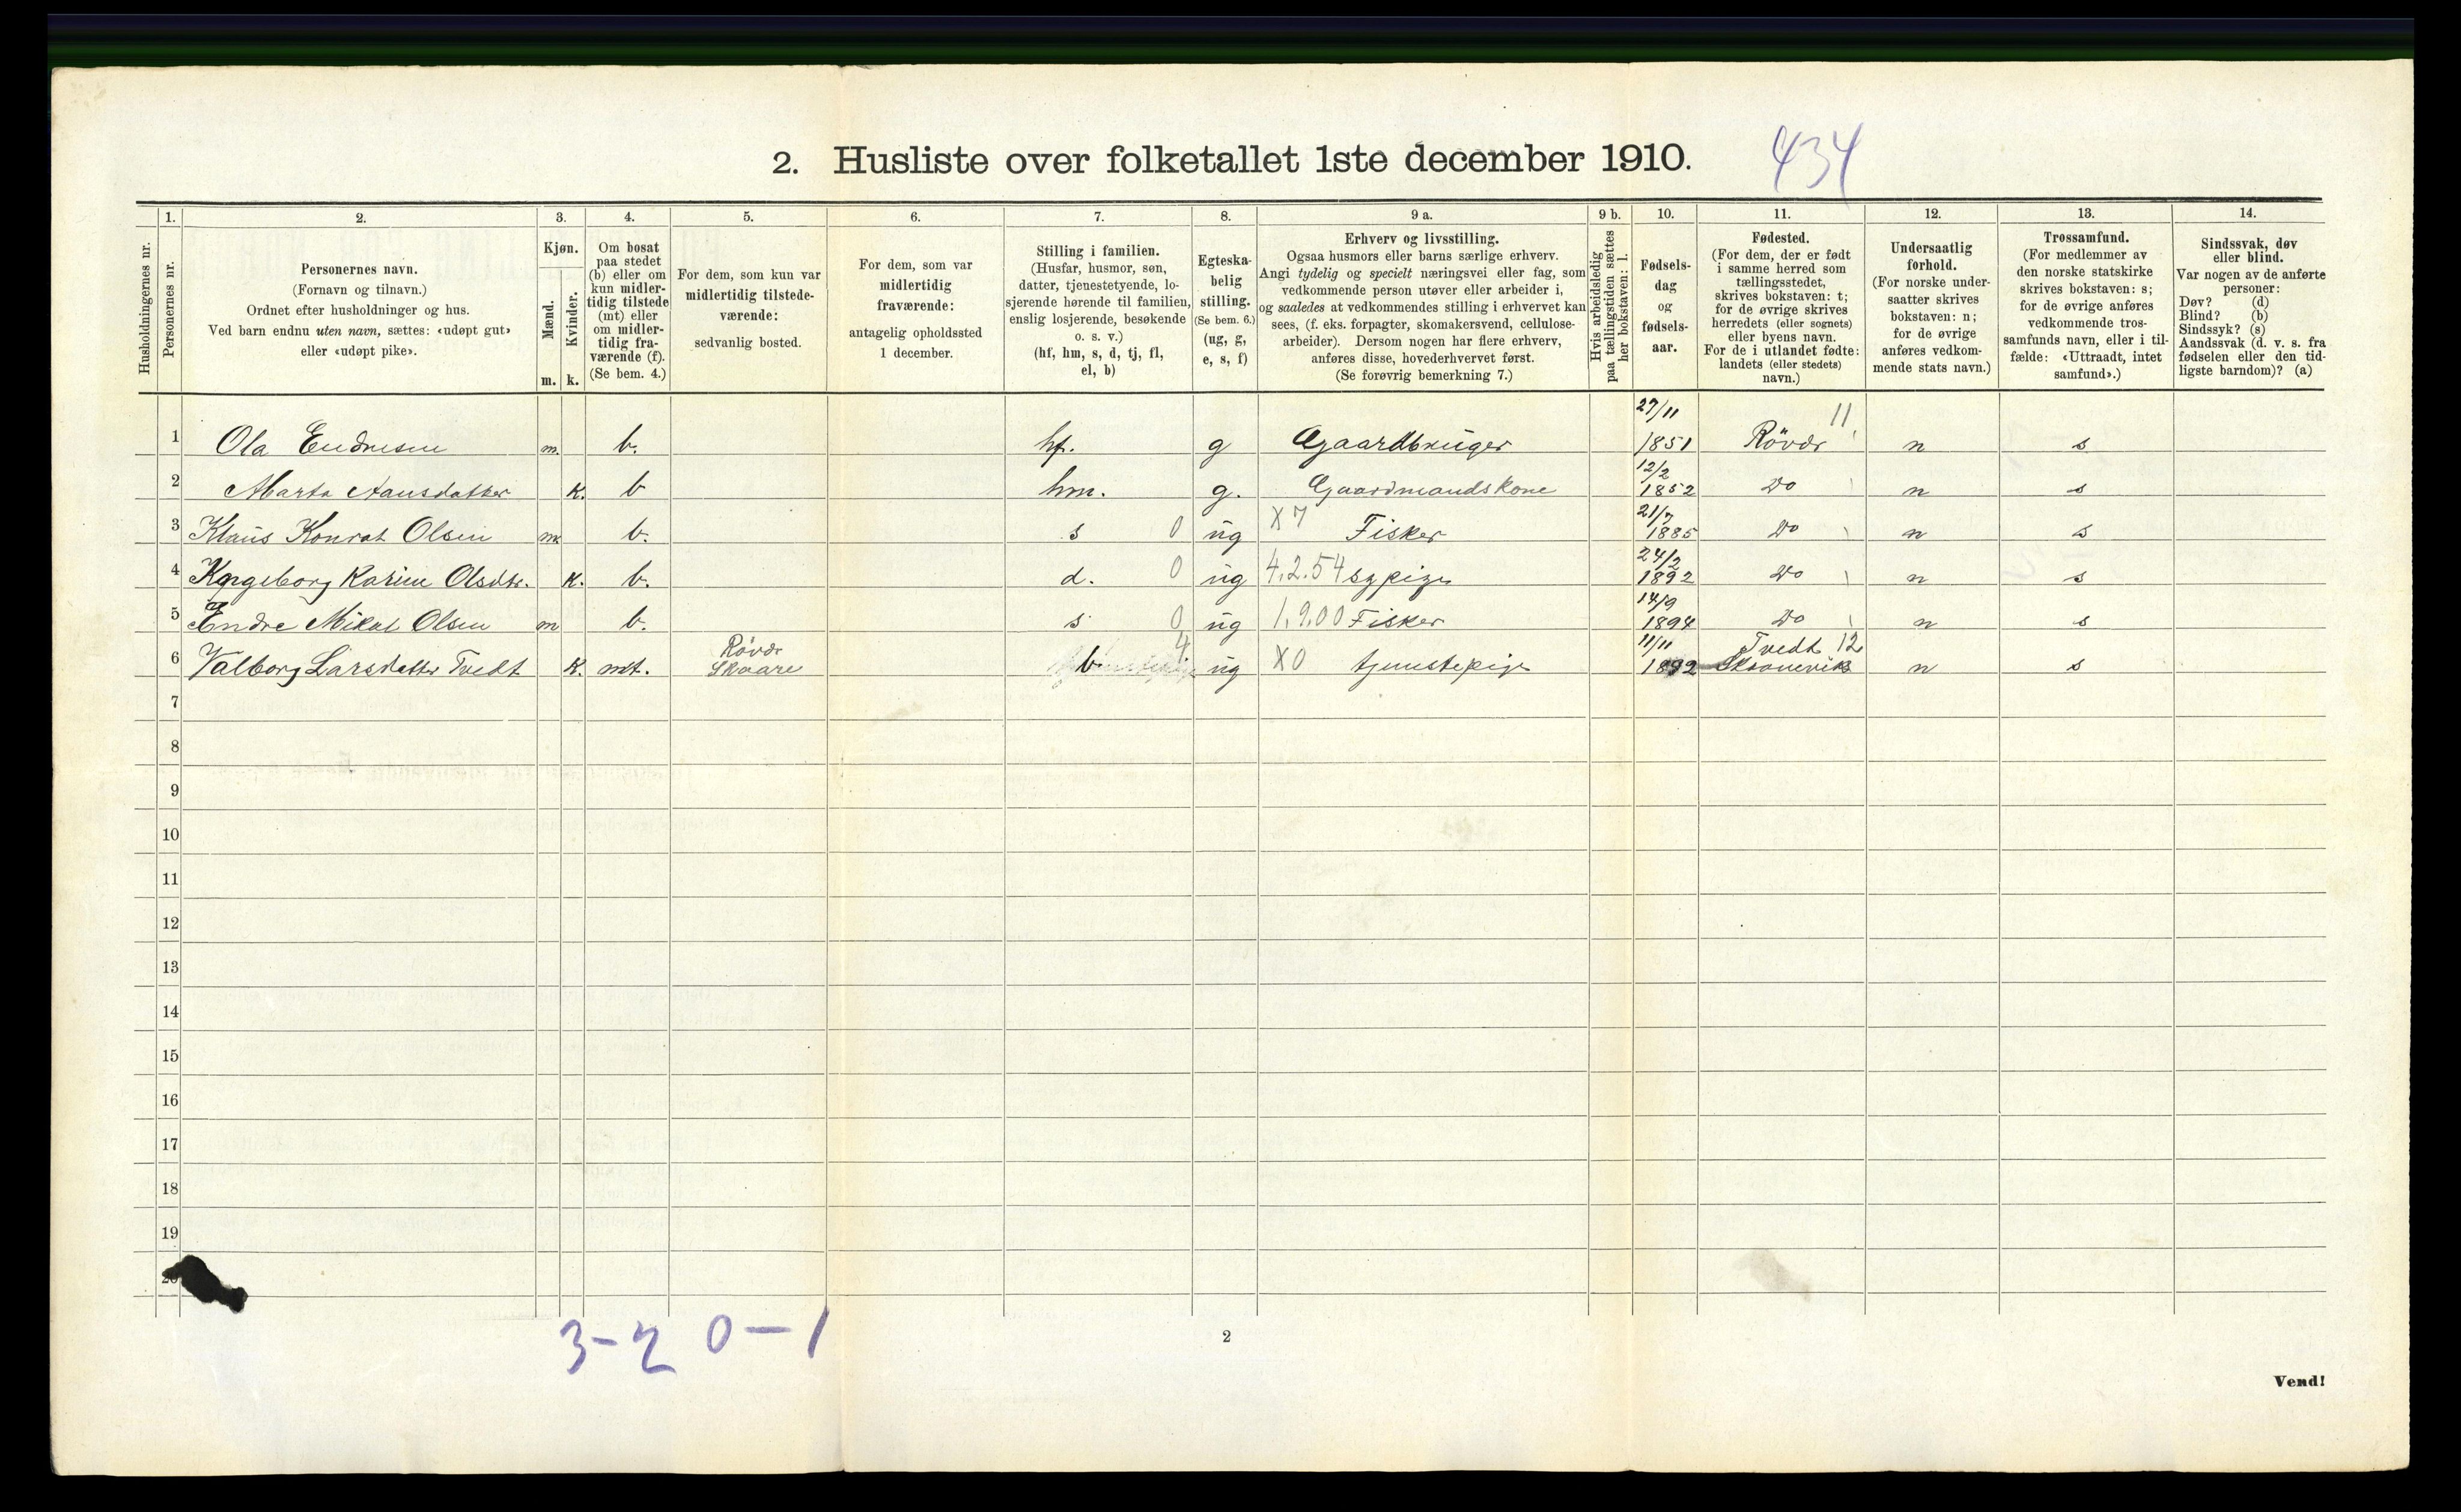 2. Husliste over folketallet 1ste december 1910. 434
Husholdningernes nr.
1.
Personernes nr.
2.
Personernes navn.
(Fornavn og tilnavn.)
Ordnet efter husholdninger og hus.
Ved barn endnu uten navn, sættes: «udøpt gut»
eller «udøpt pike».
3.
Kjøn.
Mænd.
Kvinder.
m. k.
4.
Om bosat
paa stedet
(b) eller om
kun midler-
tidig tilstede
(mt) eller
om midler-
tidig fra-
værende (f).
(Se bem. 4.)
5.
For dem, som kun var
midlertidig tilstede-
værende:
sedvanlig bosted.
6.
For dem, som var
midlertidig
fraværende:
antagelig opholdssted
1 december.
7.
Stilling i familien.
(Husfar, husmor, søn,
datter, tjenestetyende, lo-
sjerende hørende til familien,
enslig losjerende, besøkende
o. s. v.)
(hf, hm, s, d, tj, fl,
el, b)
8.
Egteska-
belig
stilling.
(Se bem. 6.)
(ug, g,
e, s, f)
9 a.
Erhverv og livsstilling.
Ogsaa husmors eller barns særlige erhverv.
Angi tydelig og specielt næringsvei eller fag, som
vedkommende person utøver eller arbeider i,
og saaledes at vedkommendes stilling i erhvervet kan
sees, (f. eks. forpagter, skomakersvend, cellulose-
arbeider). Dersom nogen har flere erhverv,
anføres disse, hovederhvervet først.
(Se forøvrig bemerkning 7.)
9 b.
Hvis arbeidsledig
paa tællingstiden sættes
her bokstaven: l.
10.
Fødsels-
dag
og
fødsels-
aar.
11.
Fødested.
(For dem, der er født
i samme herred som
tællingsstedet,
skrives bokstaven: t;
for de øvrige skrives
herredets (eller sognets)
eller byens navn.
For de i utlandet fødte:
landets (eller stedets)
navn.)
12.
Undersaatlig
forhold.
(For norske under-
saatter skrives
bokstaven: n;
for de øvrige
anføres vedkom-
mende stats navn.)
13.
Trossamfund.
(For medlemmer av
den norske statskirke
skrives bokstaven: s;
for de øvrige anføres
vedkommende tros-
samfunds navn, eller i til-
fælde: «Uttraadt, intet
samfund».)
14.
Sindssvak, døv
eller blind.
Var nogen av de anførte
personer:
Døv? (d)
Blind? (b)
Sindssyk? (s)
Aandssvak (d. v. s. fra
fødselen eller den tid-
ligste barndom)? (a)
27/11 11
1 Ola Endresen m. b. hf. g Gaardbruger 1851 Rövær n s
12/2
2 Marta Hansdatter k. b hm. g. Gaardmandskone 1852 Do n s
21/7
3 Klaus Konrat Olsen m. b. s 0 ug X7 Fisker 1885 Do n s
24/2
4 Ingeborg Karine Olsdtr. k. b. d. 0 ug 4.2.54 sypige 1892 Do n s
14/9
5 Endre Mikal Olsen m b. s 0 ug 1.9.00 Fisker 1894 Do n s
Rövær 4 11/11 Tvedt 12
6 Valborg Larsdatter Tvedt k. mt. Skaare b ug X0 tjenstepige 1892 Skaanevik n s
7
8
9
10
11
12
13
14
15
16
17
18
19
20
3-2 0-1
2
Vend!